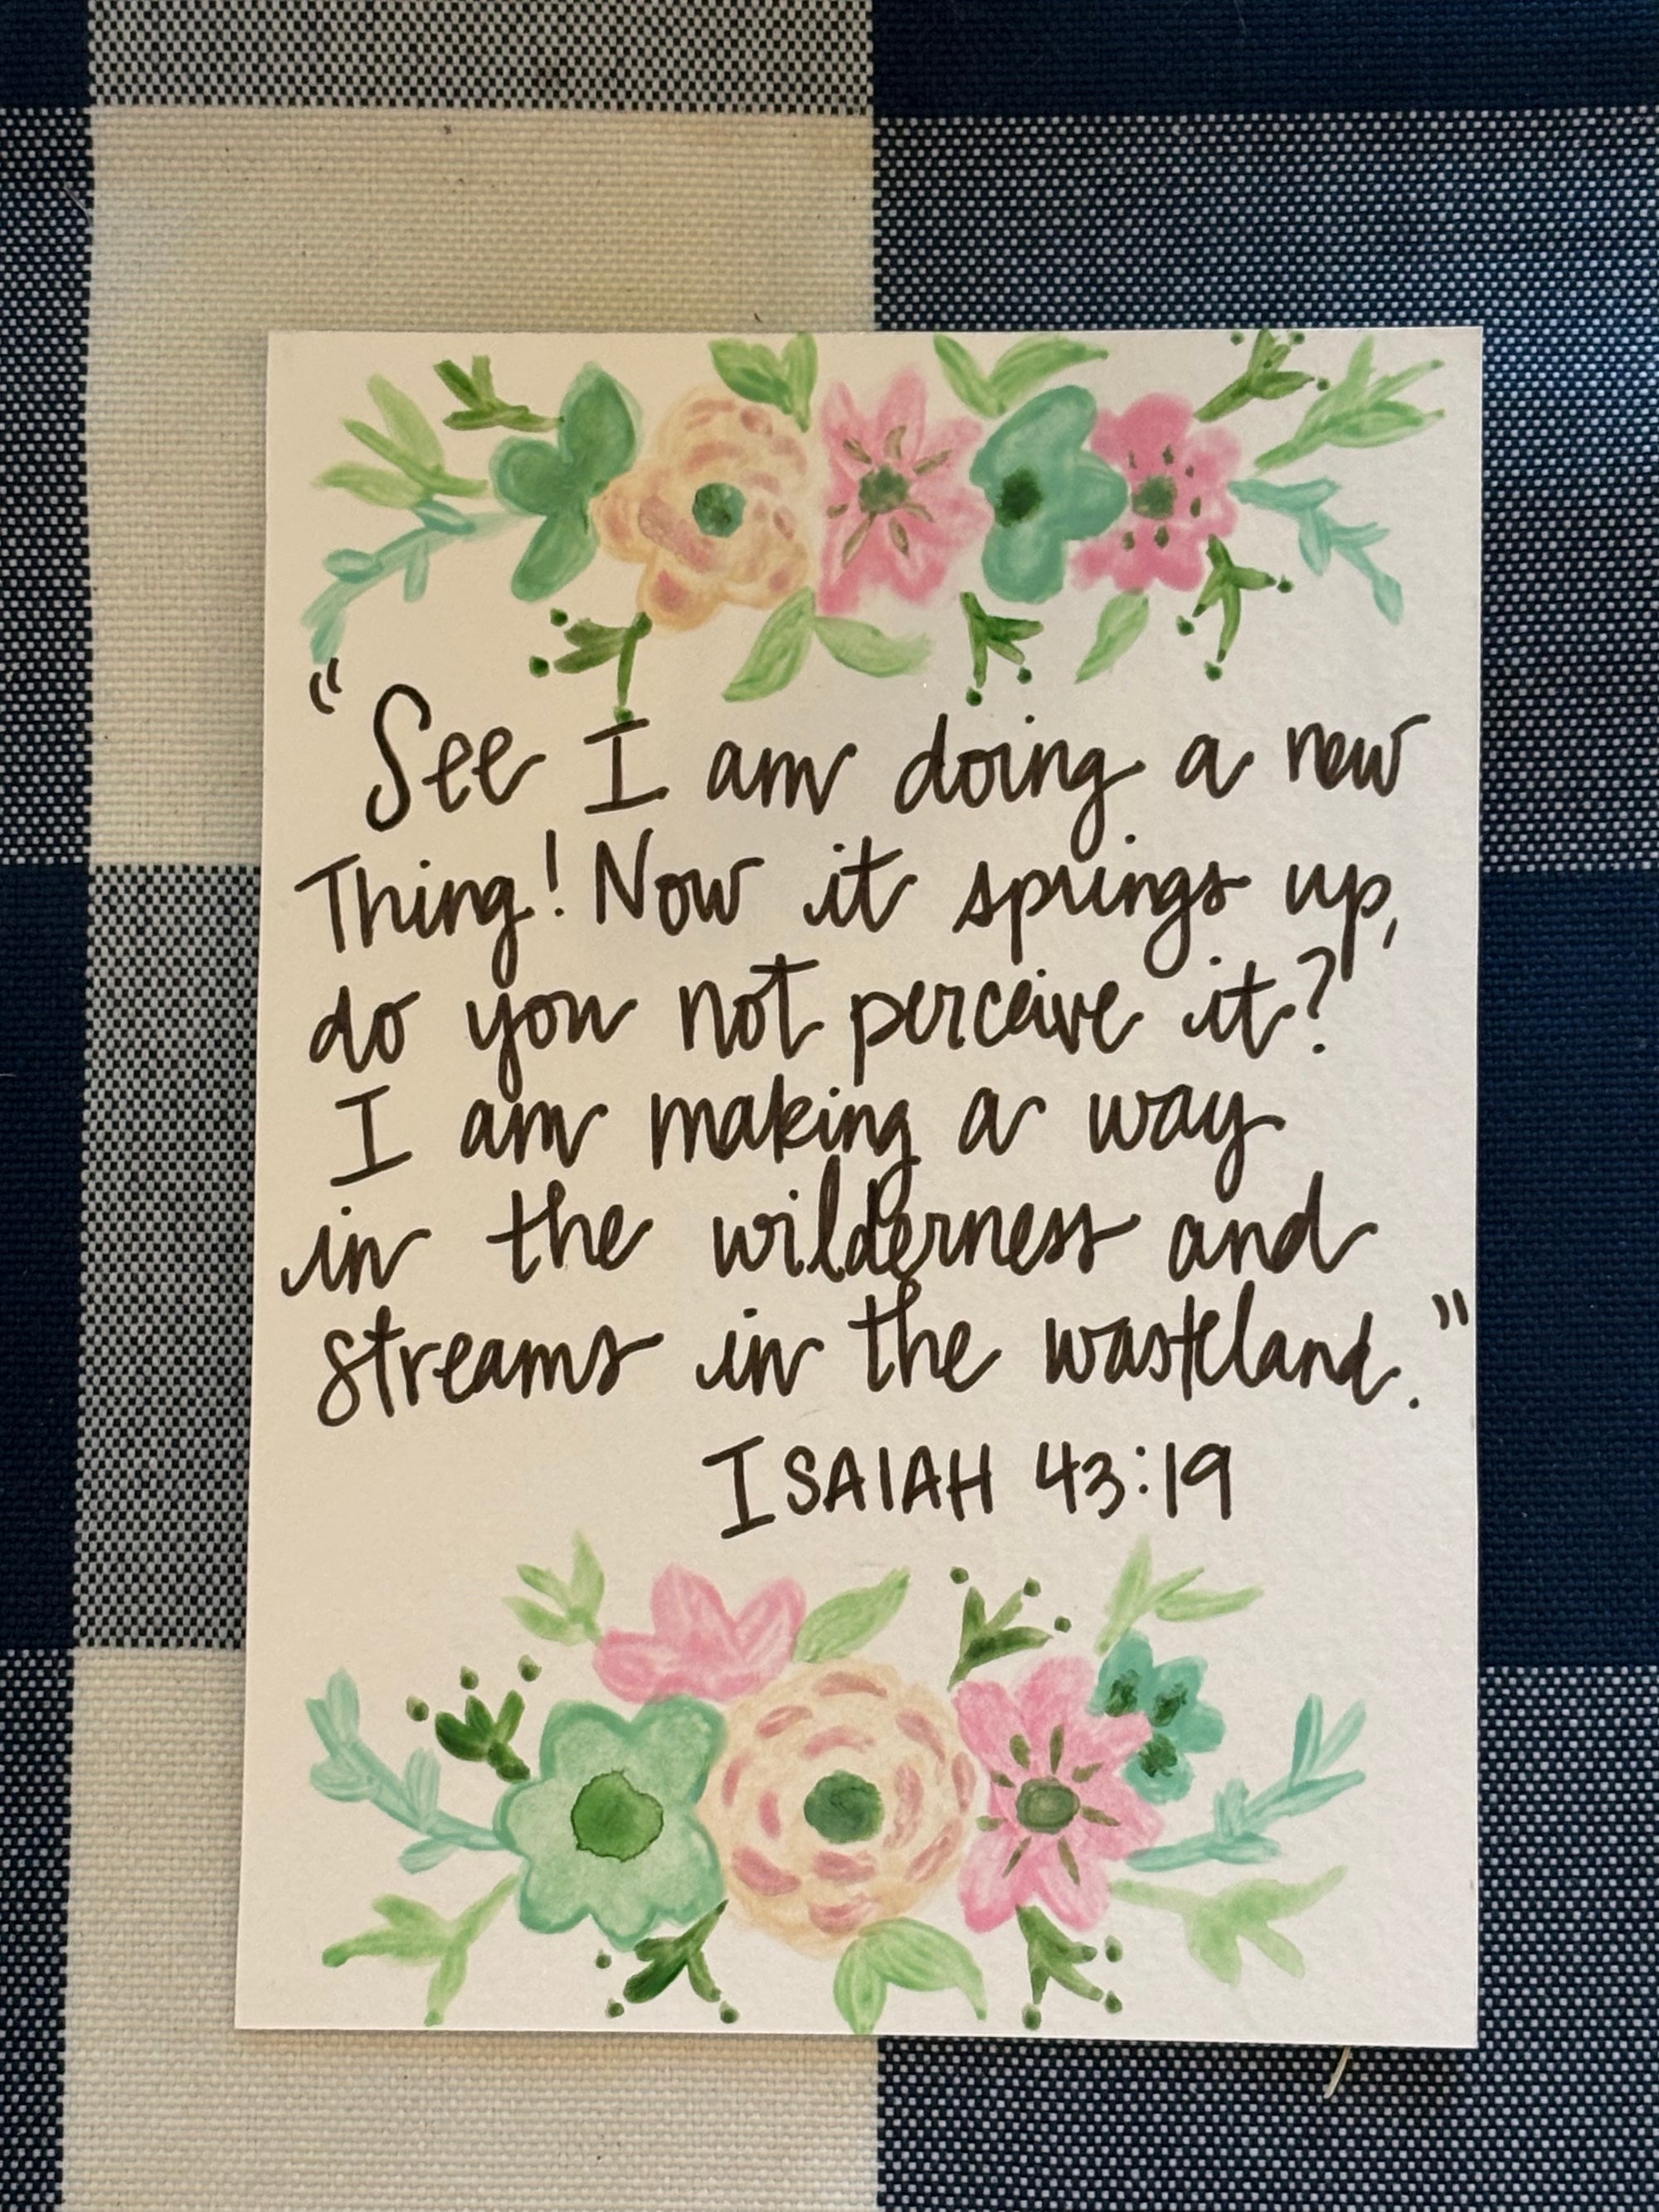 "See I am doing a new
Thing! Now it springs up,
do you not perceive it?
I am making a way
in the wilderness and
streams in the wasteland."
ISAIAH 43:19